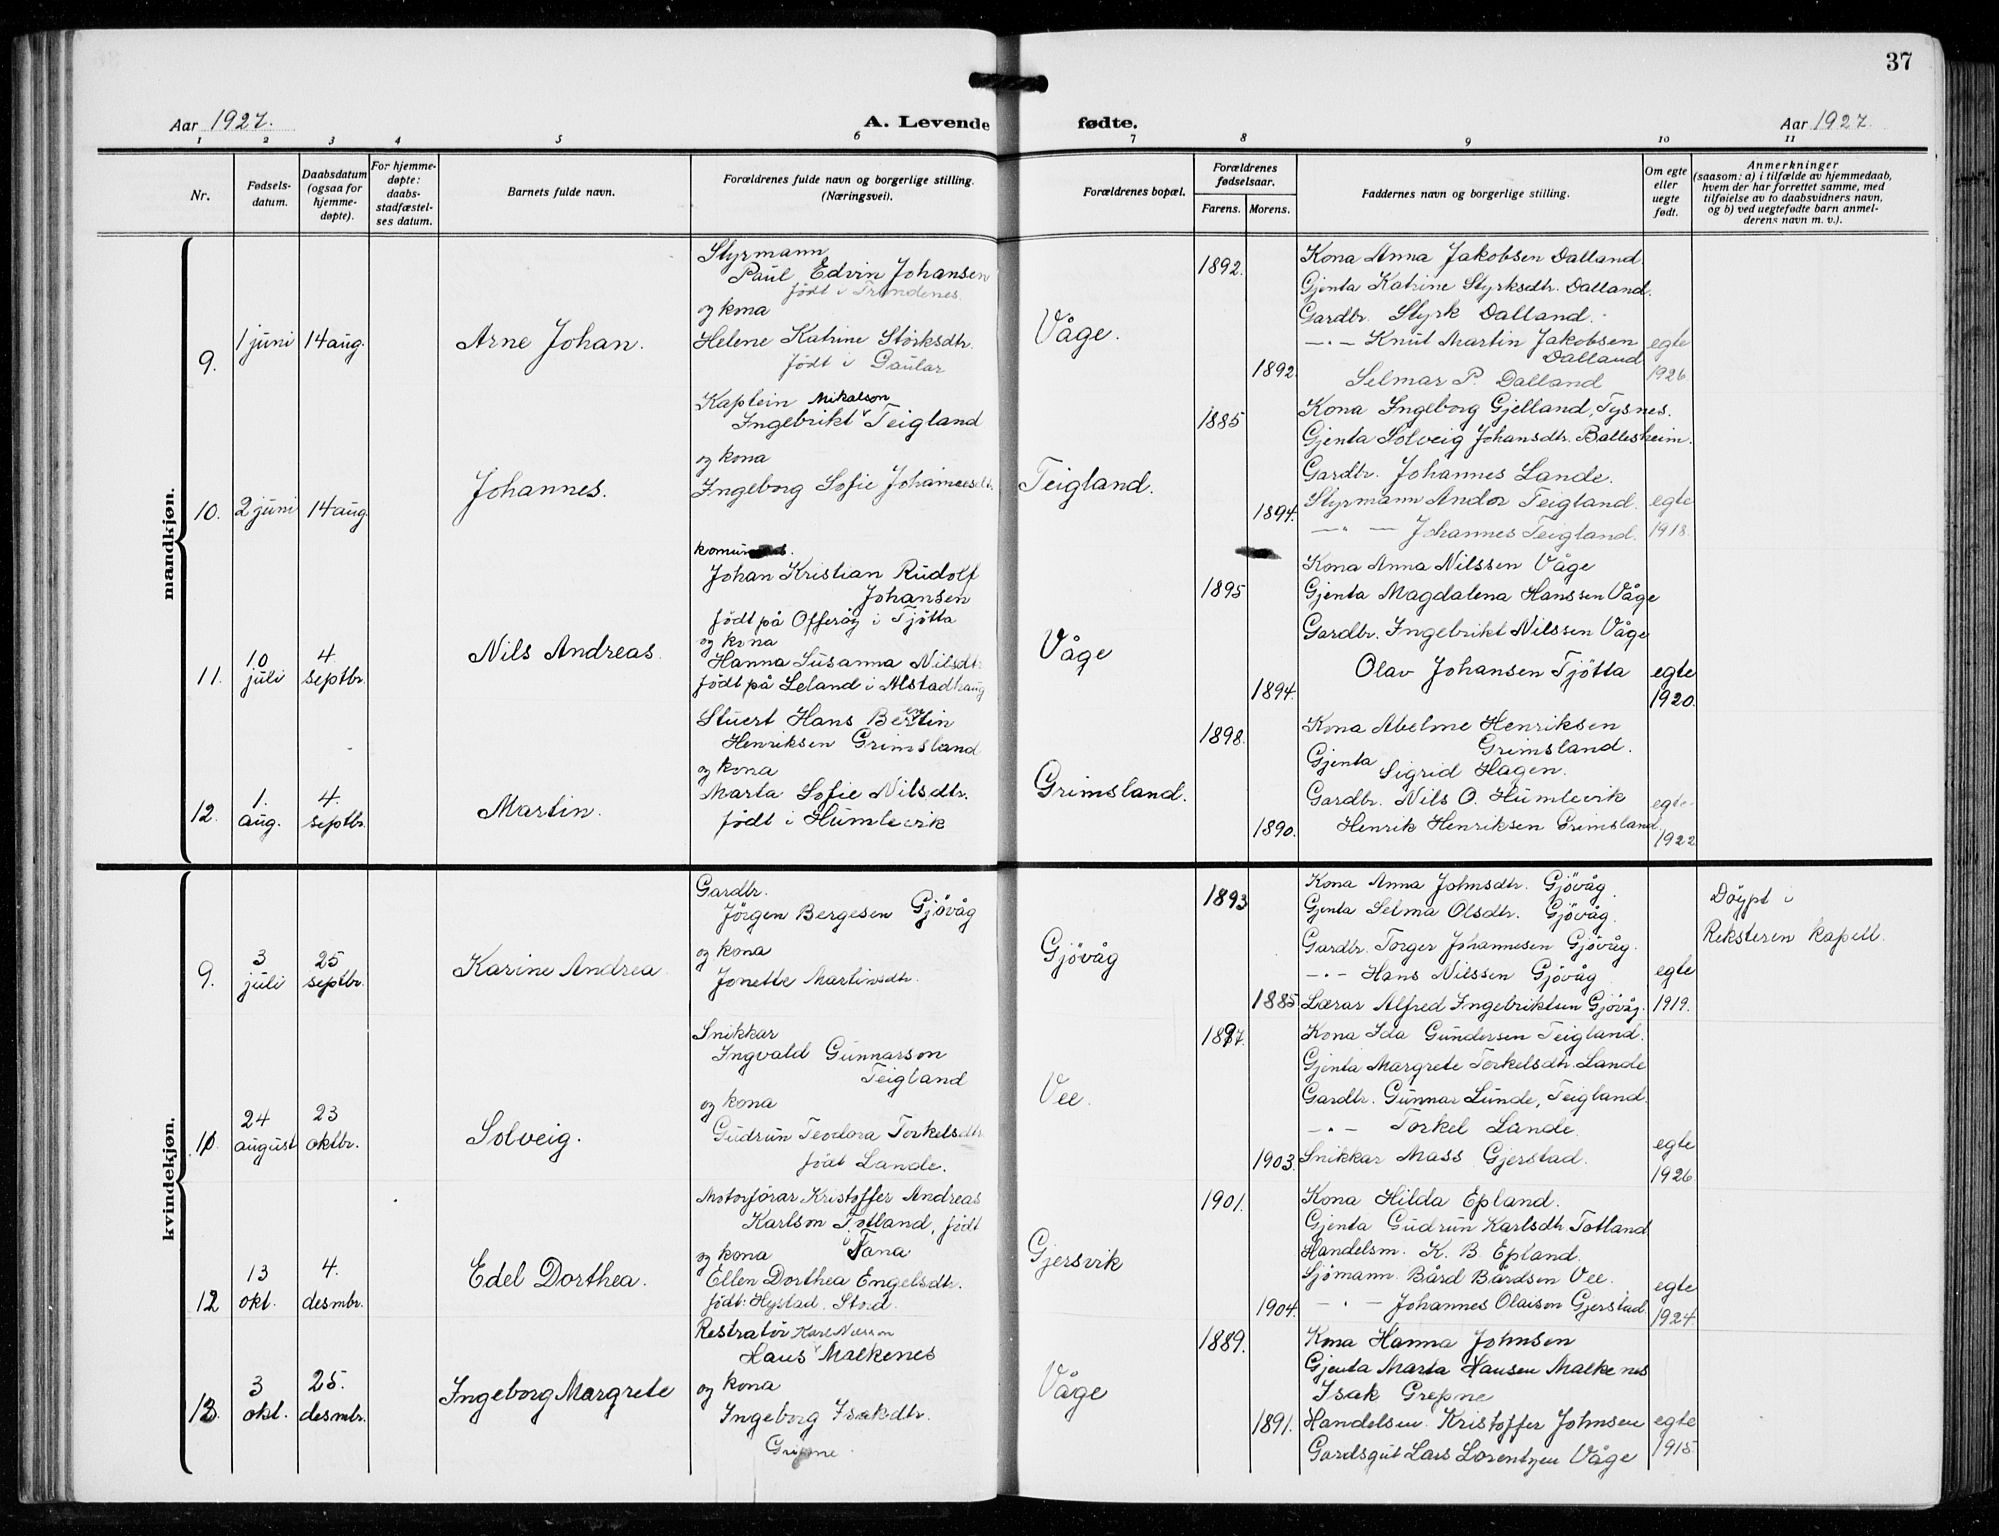 37
Aar 1927.
A. Levende fødte.
Aar 1927.
1 2 3 4 5 6 7 8 9 10 11
Nr.
Fødsels-
datum.
Daabsdatum
(ogsaa for
hjemme-
døpte).
For hjemme-
døpte:
daabs-
stadfæstel-
ses datum.
Barnets fulde navn.
Forældrenes fulde navn og borgerlige stilling.
(Næringsvei).
Forældrenes bopæl.
Forældrenes
fødselsaar.
Farens. Morens.
Faddernes navn og borgerlige stilling.
Om egte
eller
uegte
født.
Anmerkninger
(saasom: a) i tilfælde av hjemmedaab,
hvem der har forrettet samme, med
tilføielse av to daabsvidners navn,
og b) ved uegtefødte barn anmel-
derens navn m. v.).
mandkjøn.
9.
1 juni
14 aug.
Arne Johan.
Styrmann
Paul Edvin Johansen
født i Trondenes.
og kona
Helene Katrine Störksdtr.
født i Gaular
Våge.
1892.
1892.
Kona Anna Jakobsen Dalland
Gjenta Katrine Styrksdtr. Dalland.
Gardbr. Styrk Dalland.
—"— Knut Martin Jakobsen
Dalland
Selmar P. Dalland
egte
1926.
10.
2 juni
14 aug.
Johannes.
Kaptein Mikalson
Ingebrikt ˅ Teigland
og kona
Ingebørg Sofie Johannesdt.
Teigland.
1885
1894.
Kona Ingeborg Gjelland, Tysnes.
Gjenta Solveig Johansdtr. Ballesheim.
Gardbr. Johannes Lande.
Styrmann Andor Teigland.
—"— Johannes Teigland.
egte
1918.
11.
10
juli
4
septbr.
Nils Andreas.
Johan Kristian Rudolf
Johansen
født på Offeröy i Tjötta
og kona
Hanna Susanna Nilsdtr.
født på Leland i Alstadhaug
Våge
1895
1894.
Kona Anna Nilssen Våge
Gjenta Magdalena Hanssen Våge
Gardbr. Ingebrikt Nilssen Våge
Olav Johansen Tjötta
egte
1920.
12.
1.
aug.
4.
septbr.
Martin.
Stuert Hans Bertin
Henriksen Grimsland
og kona
Marta Sofie Nilsdtr.
født i Humlevik
Grimsland.
1898.
1890.
Kona Abelme Henriksen
Grimsland.
Gjenta
Sigrid Hagen.
Gardbr. Nils O. Humlevik
Henrik Henriksen Grimsland.
egte
1922
kvindekjøn.
9.
3
juli
25
septbr.
Karine Andrea
Gardbr.
Jörgen Bergesen Gjövåg
og kona
Jonette Martinsdtr.
Gjövåg
1893
1885.
Kona Anna Johnsdtr. Gjövåg.
Gjenta Selma Olsdtr. Gjövåg.
Gardbr. Torger Johannesen Gjövåg.
—"— Hans Nilssen Gjövåg
Lærar Alfred Ingebriktsen Gjövåg.
egte
1919.
Döypt i
Reksteren kapell.
10
24
august
23
oktbr.
Solveig.
Snikkar
Ingvald Gunnarson
Teigland
og kona
Gudrun Teodora Torkelsdtr.
födt Lande.
Vee.
1897.
1903.
Kona Ida Gundersen Teigland.
Gjenta Margrete Torkelsdtr. Lande
Gardbr. Gunnar Lunde, Teigland.
—"— Torkel Lande.
Snikkar Mass Gjerstad.
egte
1926.
12
13
okt.
4.
desmbr.
Edel Dorthea.
Motorförar Kristoffer Andreas
Karlson Totland, födt
og kona i Tana
Ellen Dorthea Engelsdtr.
födt: Hystad. Stord.
Gjersvik
1901.
1904.
Kona Hilda Epland.
Gjenta Gudrun Karlsdtr. Totland
Handelsm. K. B. Epland.
Sjömann Bård Bårdsen Vee.
—"— Johannes Olaison Gjerstad
egte
1924.
13
3
okt.
25.
desmbr.
Ingeborg Margrete
Restratör Karl Nilsson
Hans ˅ Malkenes
og kona
Ingeborg Isakdtr.
Grepne.
Våge
1889.
1891.
Kona Hanna Johnsen
Gjenta Marta Hansen Malkenes
Isak Grepne
Handelsm. Kristoffer Johnsen
Gardsgut Lars Lorentzen Våge
egte
1915.